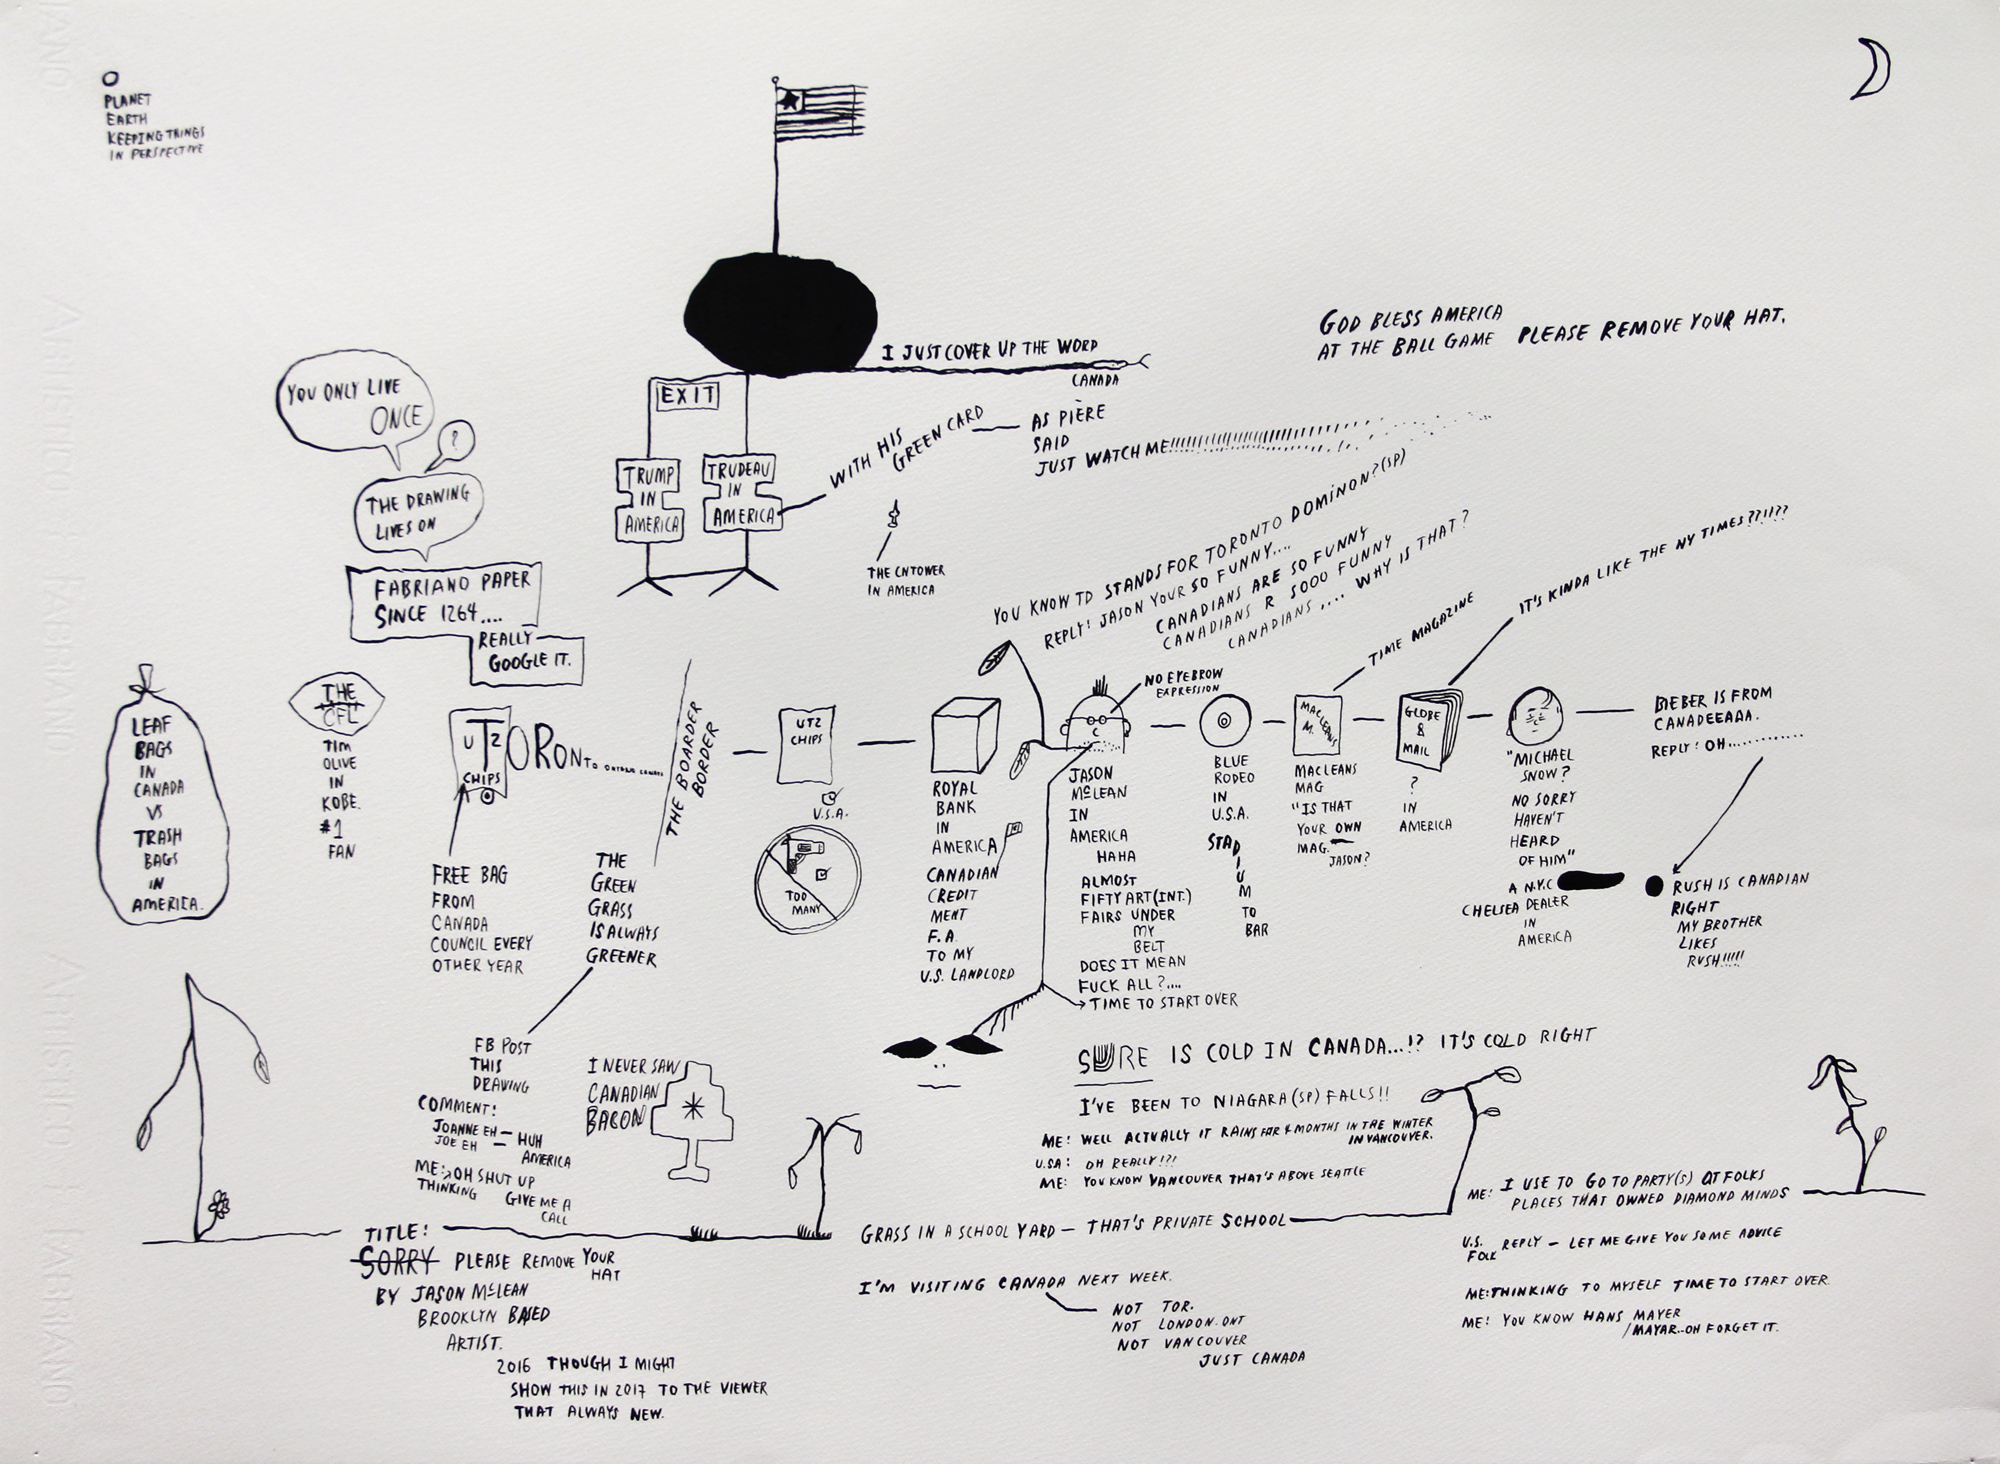 PLANET
EARTH
KEEPING THINGS
IN PERSPECTIVE
I JUST COVER UP THE WORD
CANADA
GOD BLESS AMERICA
AT THE BALL GAME
PLEASE REMOVE YOUR HAT.
EXIT
TRUMP
IN
AMERICA
TRUDEAU
IN
AMERICA
WITH HIS
GREEN CARD
AS PIÈRE
SAID
JUST WATCH ME!!!!!!!!!!!!!!!!!!!!!!!!!!!
THE CNTOWER
IN AMERICA
YOU ONLY LIVE
ONCE
?
THE DRAWING
LIVES ON
FABRIANO PAPER
SINCE 1264....
REALLY
GOOGLE IT.
YOU KNOW TD STANDS FOR TORONTO DOMINON?(SP)
REPLY: JASON YOUR SO FUNNY....
CANADIANS ARE SO FUNNY
CANADIANS R SOOO FUNNY
CANADIANS .... WHY IS THAT?
NO EYEBROW
EXPRESSION
TIME MAGAZINE
IT'S KINDA LIKE THE NY TIMES??!!??
LEAF
BAGS
IN
CANADA
VS
TRASH
BAGS
IN
AMERICA.
THE
CFL
TIM
OLIVE
IN
KOBE.
#1
FAN
UTZ
CHIPS
TORONTO ONTARIO CANADA
FREE BAG
FROM
CANADA
COUNCIL EVERY
OTHER YEAR
THE BOARDER
BORDER
THE
GREEN
GRASS
IS ALWAYS
GREENER
UTZ
CHIPS
U.S.A.
TOO
MANY
ROYAL
BANK
IN
AMERICA
CANADIAN
CREDIT
MENT
F.A.
TO MY
U.S. LANDLORD
JASON
MCLEAN
IN
AMERICA
HAHA
ALMOST
FIFTY ART (INT.)
FAIRS UNDER
MY
BELT
DOES IT MEAN
FUCK ALL?....
TIME TO START OVER
BLUE
RODEO
IN
U.S.A.
STADIUM
TO
BAR
MACLEANS
M.
MACLEANS
MAG
"IS THAT
YOUR OWN
MAG.
JASON?
GLOBE
&
MAIL
?
IN
AMERICA
"MICHAEL
SNOW?
NO SORRY
HAVEN'T
HEARD
OF HIM"
A N.Y.C
CHELSEA DEALER
IN
AMERICA
BIEBER IS FROM
CANADEEADA.
REPLY: OH............
RUSH IS CANADIAN
RIGHT
MY BROTHER
LIKES
RUSH!!!!!
FB POST
THIS
DRAWING
COMMENT:
JOANNE EH — HUH
JOE EH — AMERICA
ME: OH SHUT UP
THINKING GIVE ME A
CALL
I NEVER SAW
CANADIAN
BACON
SURE IS COLD IN CANADA...!? IT'S COLD RIGHT
I'VE BEEN TO NIAGARA (SP) FALLS!!
ME: WELL ACTUALLY IT RAINS FOR 4 MONTHS IN THE WINTER
IN VANCOUVER.
U.SA: OH REALLY!?!
ME: YOU KNOW VANCOUVER THAT'S ABOVE SEATTLE
GRASS IN A SCHOOL YARD — THAT'S PRIVATE SCHOOL
I'M VISITING CANADA NEXT WEEK.
NOT TOR.
NOT LONDON. ONT
NOT VANCOUVER
JUST CANADA
ME: I USE TO GO TO PARTY(S) AT FOLKS
PLACES THAT OWNED DIAMOND MINDS
U.S.
FOLK REPLY — LET ME GIVE YOU SOME ADVICE
ME: THINKING TO MYSELF TIME TO START OVER.
ME: YOU KNOW HANS MAYER
/MAYAR..OH FORGET IT.
TITLE:
SORRY PLEASE REMOVE YOUR
HAT
BY JASON MCLEAN
BROOKLYN BASED
ARTIST.
2016 THOUGH I MIGHT
SHOW THIS IN 2017 TO THE VIEWER
THAT ALWAYS NEW.
ARTISTICO FABRIANO
ARTISTICO FABRIANO